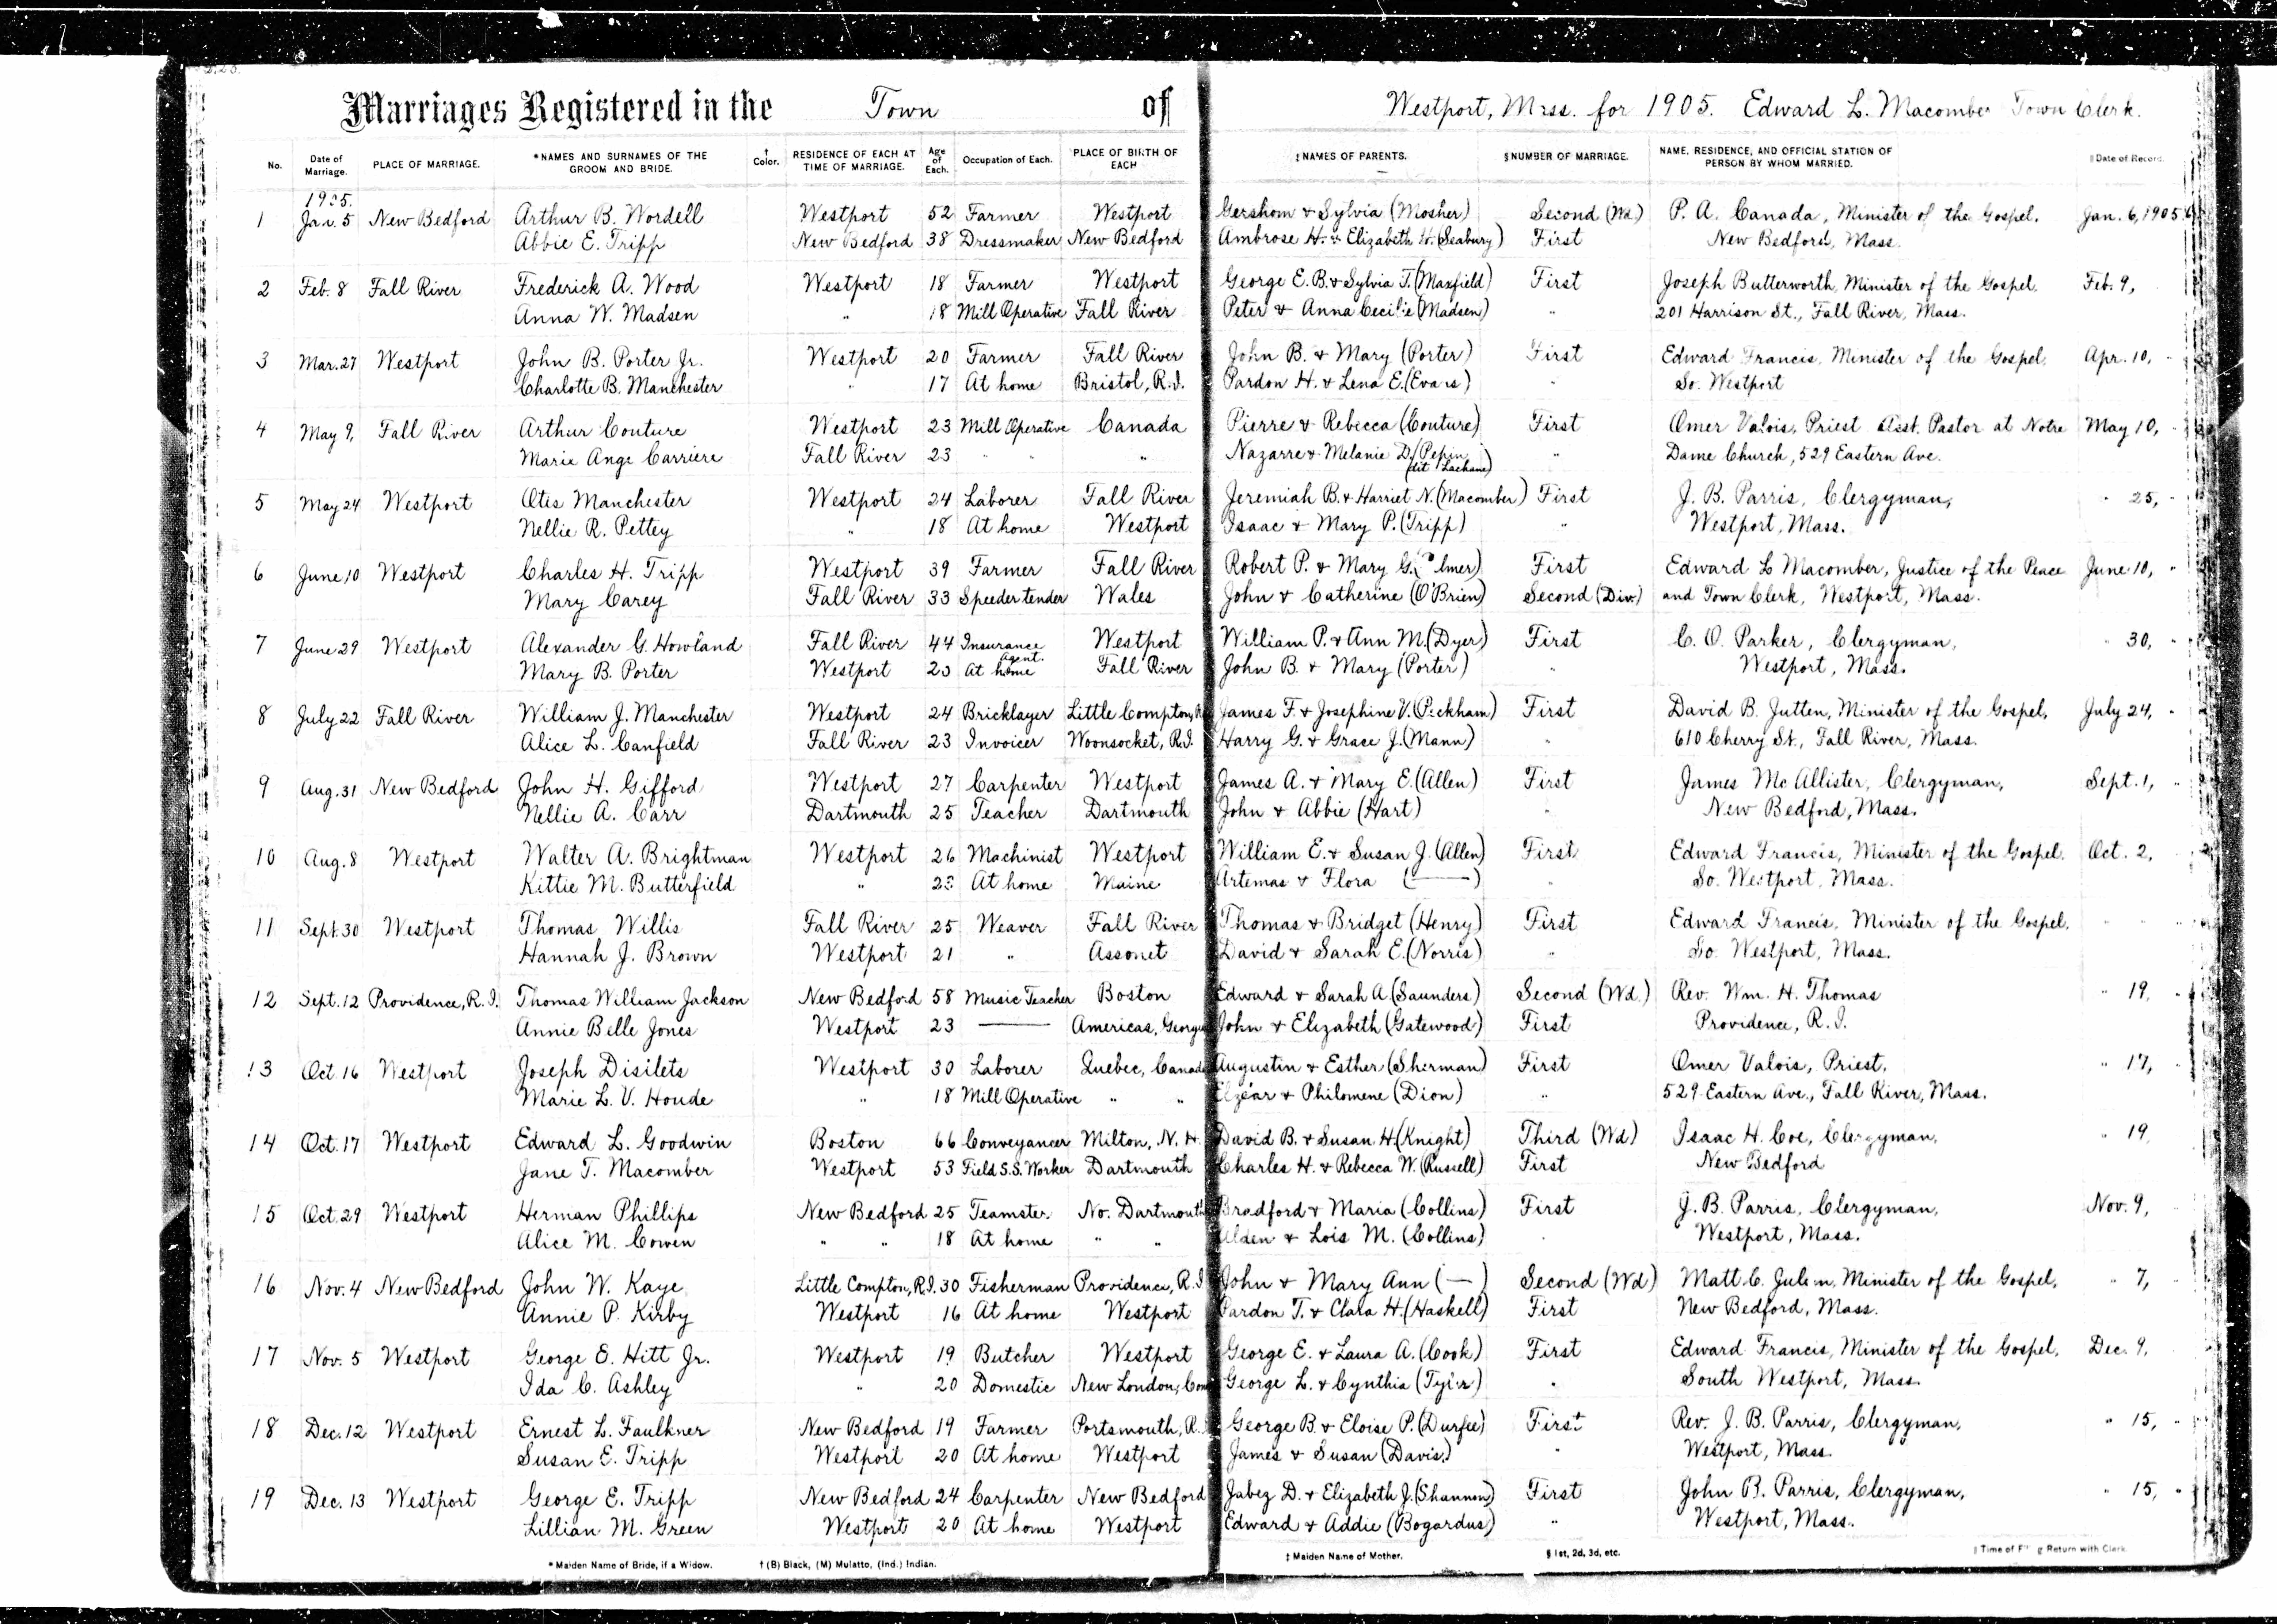 Marriages Registered in the Town of Westport, Mass. for 1905. Edward L. Macomber Town Clerk.
No. Date of Marriage. PLACE OF MARRIAGE. *NAMES AND SURNAMES OF THE GROOM AND BRIDE. †Color. RESIDENCE OF EACH AT TIME OF MARRIAGE. Age of Each. Occupation of Each. PLACE OF BIRTH OF EACH ‡NAMES OF PARENTS. §NUMBER OF MARRIAGE. NAME, RESIDENCE, AND OFFICIAL STATION OF PERSON BY WHOM MARRIED. ‖Date of Record.
1905.
1 Jan. 5 New Bedford Arthur B. Wordell Westport 52 Farmer Westport Gershom & Sylvia (Mosher) Second (Wd.) P. A. Canada, Minister of the Gospel. Jan. 6, 1905
Abbie E. Tripp New Bedford 38 Dressmaker New Bedford Ambrose H. & Elizabeth H. (Seabury) First New Bedford, Mass.
2 Feb. 8 Fall River Frederick A. Wood Westport 18 Farmer Westport George E. B. & Sylvia T. (Maxfield) First Joseph Butterworth, Minister of the Gospel. Feb. 9,
Anna W. Madsen " 18 Mill Operative Fall River Peter & Anna Cecilie (Madsen) " 201 Harrison St., Fall River, Mass.
3 Mar. 27 Westport John B. Porter Jr. Westport 20 Farmer Fall River John B. & Mary (Porter) First Edward Francis, Minister of the Gospel. Apr. 10, "
Charlotte B. Manchester " 17 At home Bristol, R.I. Pardon H. & Lena E. (Evans) " So. Westport
4 May 9, Fall River Arthur Couture Westport 23 Mill Operative Canada Pierre & Rebecca (Couture) First Omer Valois, Priest Asst. Pastor at Notre May 10, "
Marie Ange Carriere Fall River 23 " " " Nazarre & Melanie D. (Pepin dit Lachane) " Dame Church, 529 Eastern Ave.
5 May 24 Westport Otis Manchester Westport 24 Laborer Fall River Jeremiah B. & Harriet N. (Macomber) First J. B. Parris, Clergyman, " 25, "
Nellie R. Pettey " 18 At home Westport Isaac & Mary P. (Tripp) " Westport, Mass.
6 June 10 Westport Charles H. Tripp Westport 39 Farmer Fall River Robert P. & Mary G. First Edward L Macomber, Justice of the Peace June 10, "
Mary Carey Fall River 33 Speeder tender Wales John & Catherine (O'Brien) Second (Div.) and Town Clerk, Westport, Mass.
7 June 29 Westport Alexander G. Howland Fall River 44 Insurance Agent. Westport William P. & Ann M. (Dyer) First C. O. Parker, Clergyman, " 30, "
Mary B. Porter Westport 23 At home Fall River John B. & Mary (Porter) " Westport, Mass.
8 July 22 Fall River William J. Manchester Westport 24 Bricklayer Little Compton, James F. & Josephine V. (Peckham) First David B. Jutten, Minister of the Gospel, July 24, "
Alice L. Canfield Fall River 23 Invoicer Woonsocket, R.I. Harry G. & Grace J. (Mann) " 610 Cherry St., Fall River, Mass.
9 Aug. 31 New Bedford John H. Gifford Westport 27 Carpenter Westport James A. & Mary E. (Allen) First James Mc Allister, Clergyman, Sept. 1, "
Nellie A. Carr Dartmouth 25 Teacher Dartmouth John & Abbie (Hart) " New Bedford, Mass.
10 Aug. 8 Westport Walter A. Brightman Westport 26 Machinist Westport William E. & Susan J. (Allen) First Edward Francis, Minister of the Gospel. Oct. 2,
Kittie M. Butterfield " At home Maine Artemas & Flora (——) " So. Westport, Mass.
11 Sept. 30 Westport Thomas Willis Fall River 25 Weaver Fall River Thomas & Bridget (Henry) First Edward Francis, Minister of the Gospel, " "
Hannah J. Brown Westport 21 " Assonet David & Sarah E. (Norris) " So. Westport, Mass.
12 Sept. 12 Providence, R.I. Thomas William Jackson New Bedford 58 Music Teacher Boston Edward & Sarah A. (Saunders) Second (Wd.) Rev. Wm. H. Thomas " 19,
Annie Belle Jones Westport 23 —— Americas, Georgia John & Elizabeth (Gatewood) First Providence, R.I.
13 Oct 16 Westport Joseph Disilets Westport 30 Laborer Quebec, Canada Augustin & Esther (Sherman) First Omer Valois, Priest, " 17,
Marie L. V. Houde " 18 Mill Operative " " Elzéar & Philomene (Dion) " 529 Eastern Ave., Fall River, Mass.
14 Oct. 17 Westport Edward L. Goodwin Boston 66 Conveyancer Milton, N. H. David B. & Susan H. (Knight) Third (Wd) Isaac H. Coe, Clergyman, " 19
Jane T. Macomber Westport 53 Field S.S. Worker Dartmouth Charles H. & Rebecca W. (Russell) First New Bedford
15 Oct. 29 Westport Herman Phillips New Bedford 25 Teamster No. Dartmouth Bradford & Maria (Collins) First J. B. Parris, Clergyman, Nov. 9,
Alice M. Cowen " " 18 At home " " Alden & Lois M. (Collins) " Westport, Mass.
16 Nov. 4 New Bedford John W. Kaye Little Compton, R.I. 30 Fisherman Providence, R.I John & Mary Ann (—) Second (Wd) Matt C. Minister of the Gospel, " 7,
Annie P. Kirby Westport 16 At home Westport Pardon T. & Clara H. (Haskell) First New Bedford, Mass.
17 Nov. 5 Westport George E. Hitt Jr. Westport 19 Butcher Westport George E. & Laura A. (Cook) First Edward Francis, Minister of the Gospel, Dec. 9,
Ida C. Ashley " 20 Domestic New London, Conn George L. & Cynthia (Tyler) " South Westport, Mass.
18 Dec. 12 Westport Ernest L. Faulkner New Bedford 19 Farmer Portsmouth, R. George B. & Eloise P. (Durfee) First Rev. J. B. Parris, Clergyman, " 15, "
Susan E. Tripp Westport 20 At home Westport James & Susan (Davis) " Westport, Mass.
19 Dec. 13 Westport George E. Tripp New Bedford 24 Carpenter New Bedford Jabez D. & Elizabeth J. (Shannon) First John B. Parris, Clergyman, " 15, "
Lillian M. Green Westport 20 At home Westport Edward & Addie (Bogardus) " Westport, Mass.
*Maiden Name of Bride, if a Widow. †(B) Black, (M) Mulatto, (Ind.) Indian. ‡Maiden Name of Mother. §1st, 2d, 3d, etc. ‖Time of Return with Clerk.